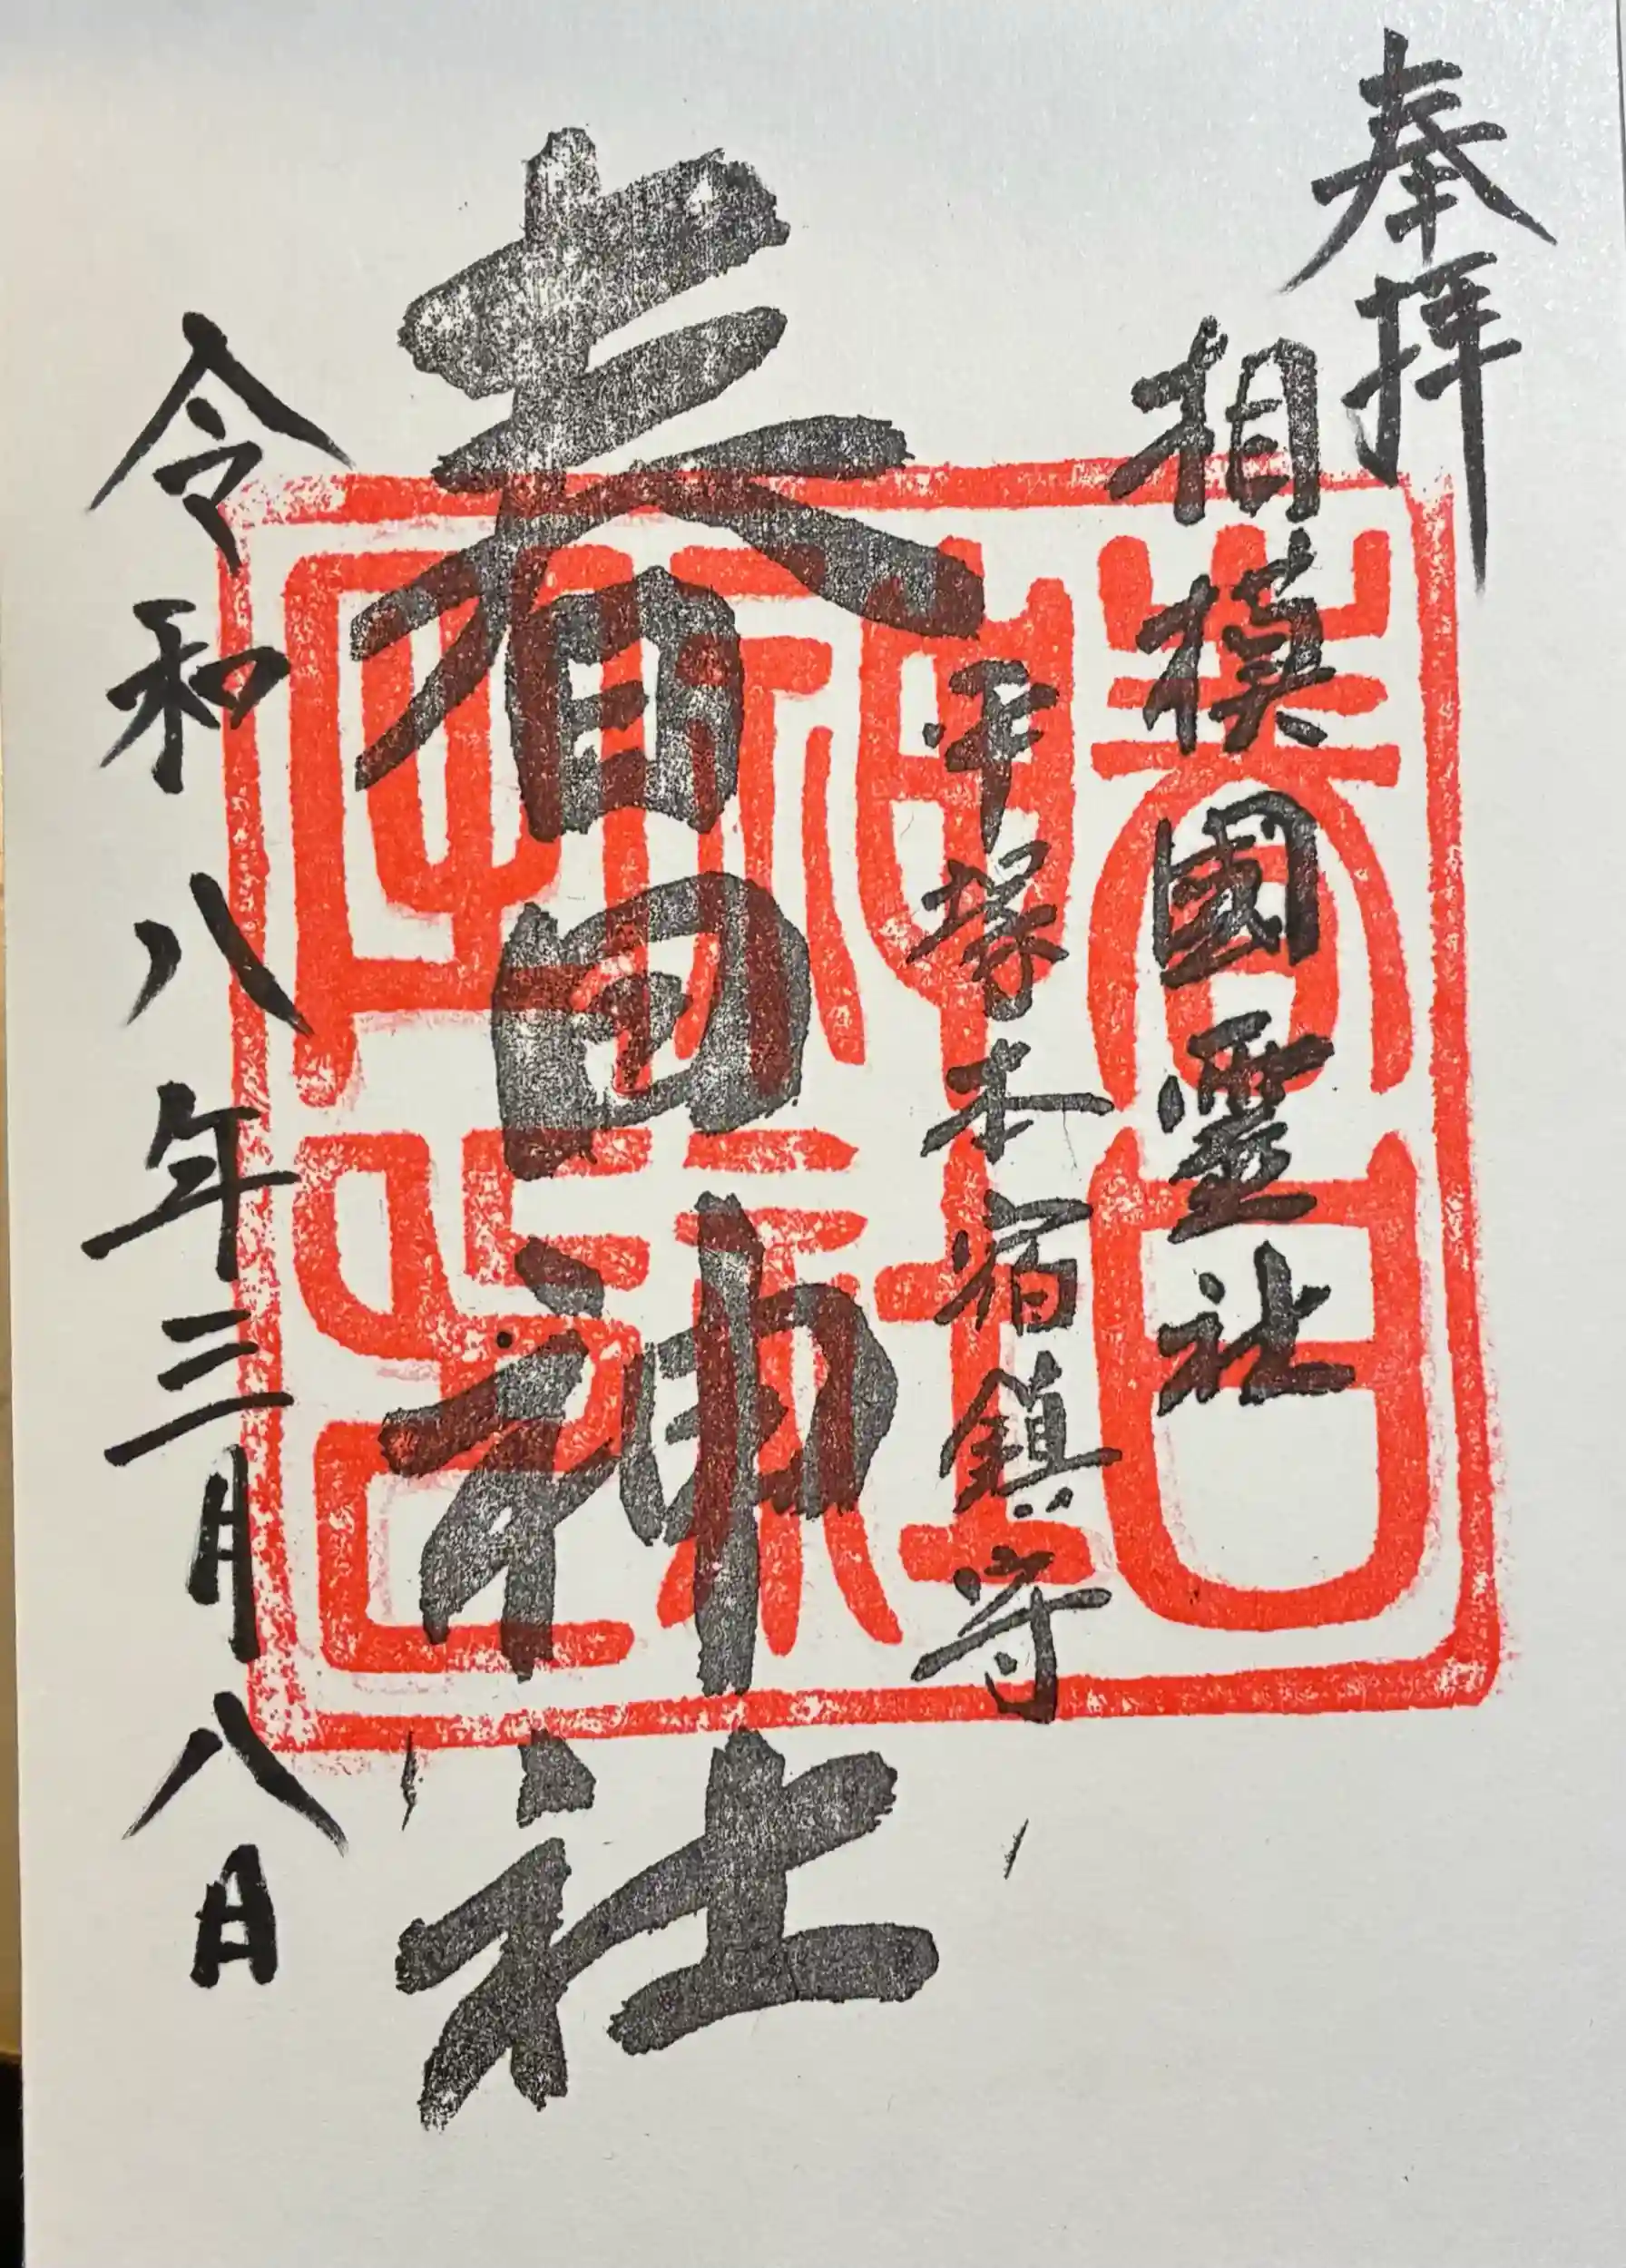 奉拝
相模國霊社
平塚本宿鎮守
春日神社
令和八年三月八日
春日神社之印